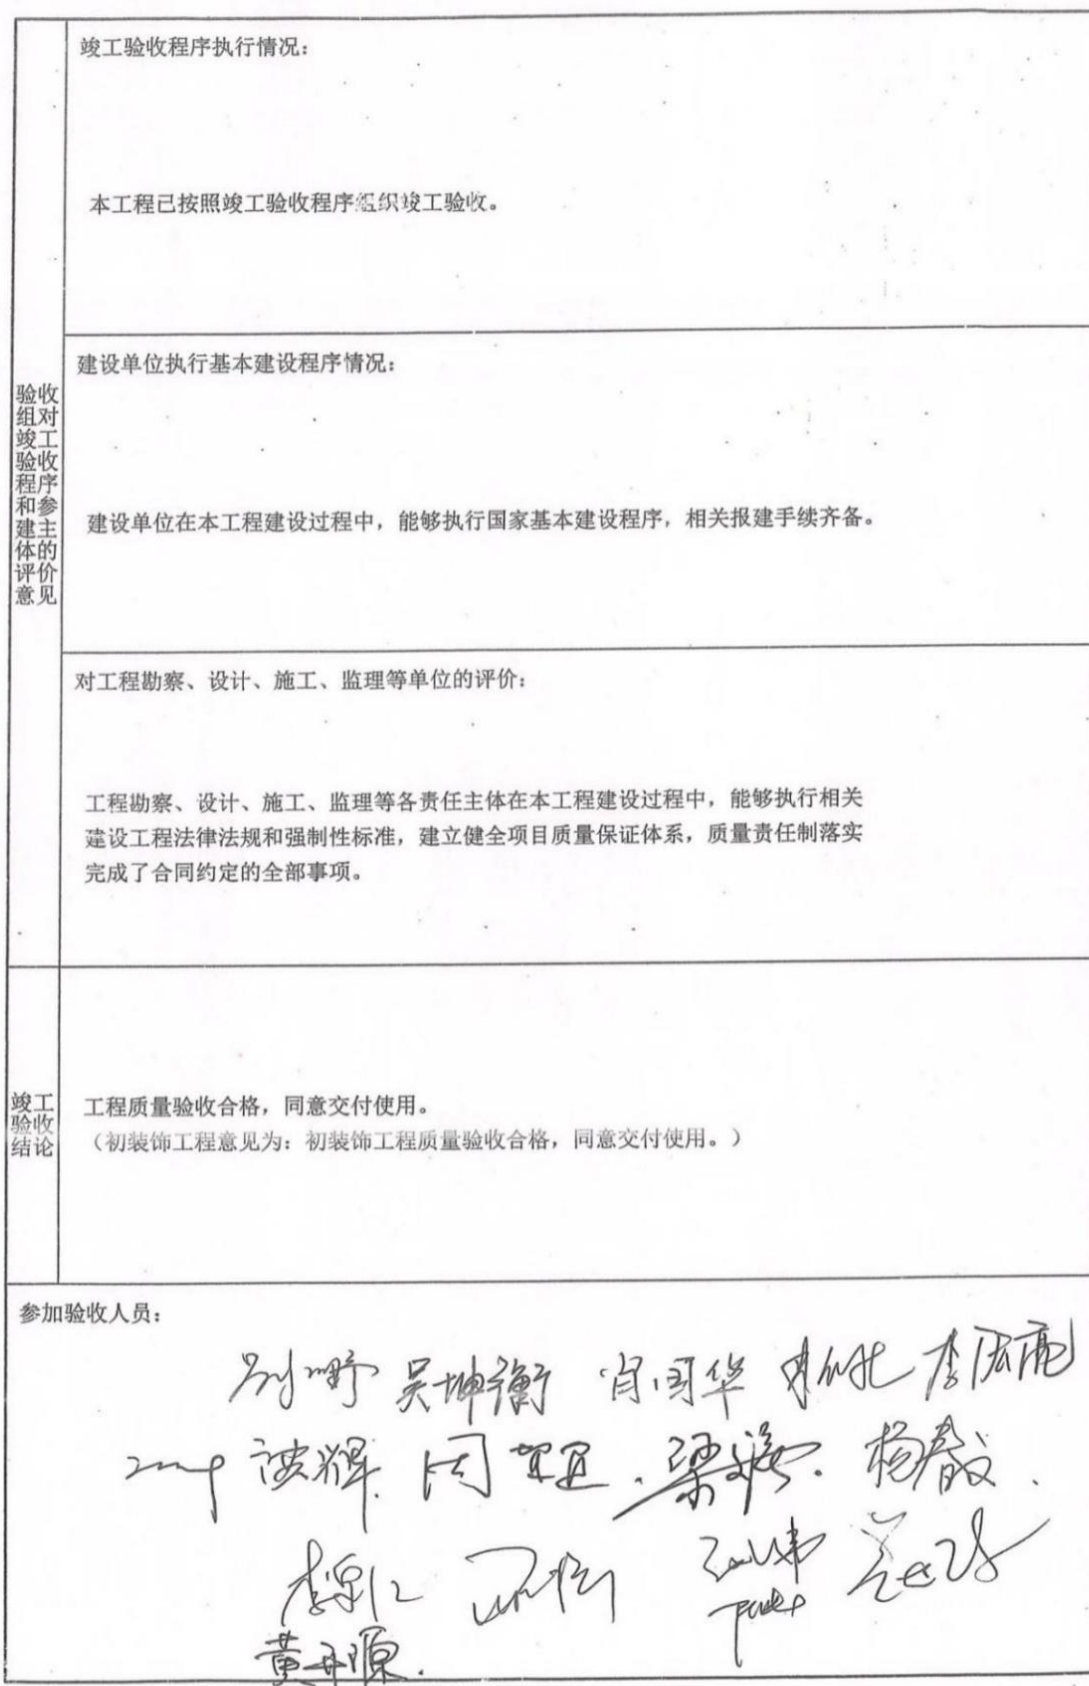 竣工验收程序执行情况：
本工程已按照竣工验收程序组织竣工验收。
验收
组对
竣工
验收
程序
和参
建主
体的
评价
意见
建设单位执行基本建设程序情况：
建设单位在本工程建设过程中，能够执行国家基本建设程序，相关报建手续齐备。
对工程勘察、设计、施工、监理等单位的评价：
工程勘察、设计、施工、监理等各责任主体在本工程建设过程中，能够执行相关
建设工程法律法规和强制性标准，建立健全项目质量保证体系，质量责任制落实
完成了合同约定的全部事项。
竣工
验收
结论
工程质量验收合格，同意交付使用。
（初装饰工程意见为：初装饰工程质量验收合格，同意交付使用。）
参加验收人员：
吴坤衡 肖国华 李宏亮
杨春文